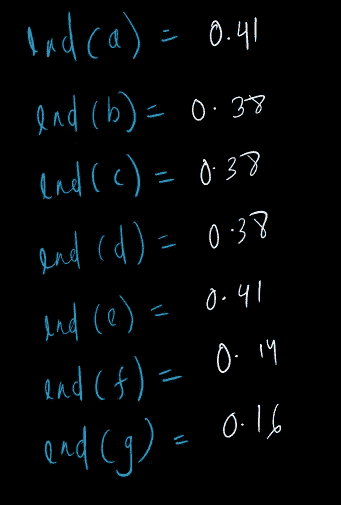 ind(a) = 0.41
end(b) = 0.38
end(c) = 0.38
end(d) = 0.38
end(e) = 0.41
end(f) = 0.14
end(g) = 0.16